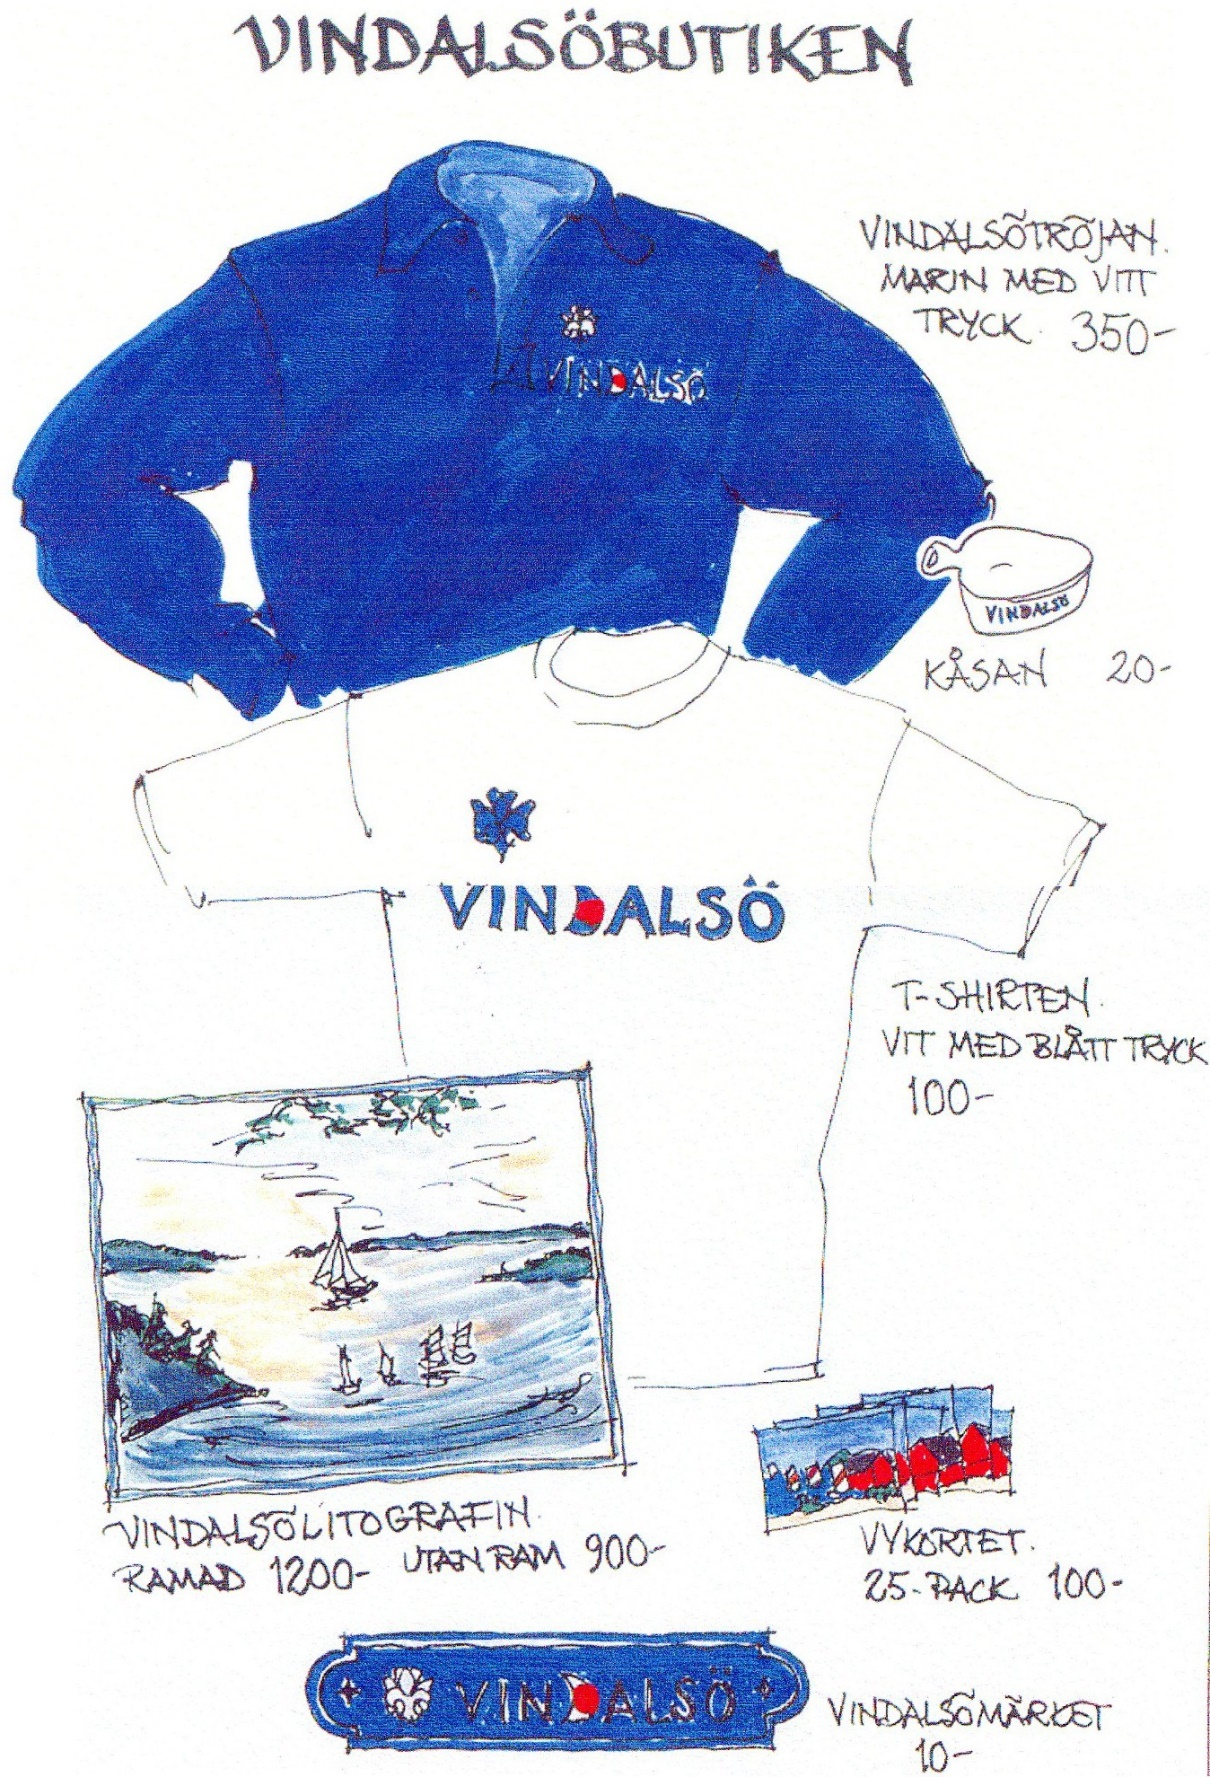 VINDALSÖBUTIKEN
VINDALSÖTRÖJAN.
MARIN MED VITT
TRYCK. 350-
VINDALSÖ
VINDALSÖ
KÅSAN 20-
VINDALSÖ
T-SHIRTEN.
VIT MED BLÅTT TRYCK
100-
VINDALSÖLITOGRAFIN.
RAMAD 1200- UTAN RAM 900-
VYKORTET.
25-PACK 100-
VINDALSÖ
VINDALSÖMÄRKET
10-